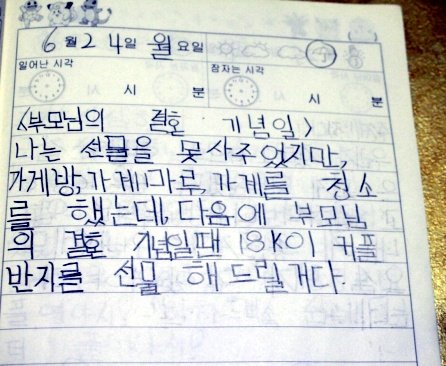 6월 24일 월요일
일어난 시각 잠자는 시각
시 분 시 분
<부모님의 결혼 기념일>
나는 선물을 못사주었지만,
가게방, 가게마루, 가게를 청소
를 했는데, 다음에 부모님
의 결혼 기념일땐 18K이 커플
반지를 선물 해 드릴거다.